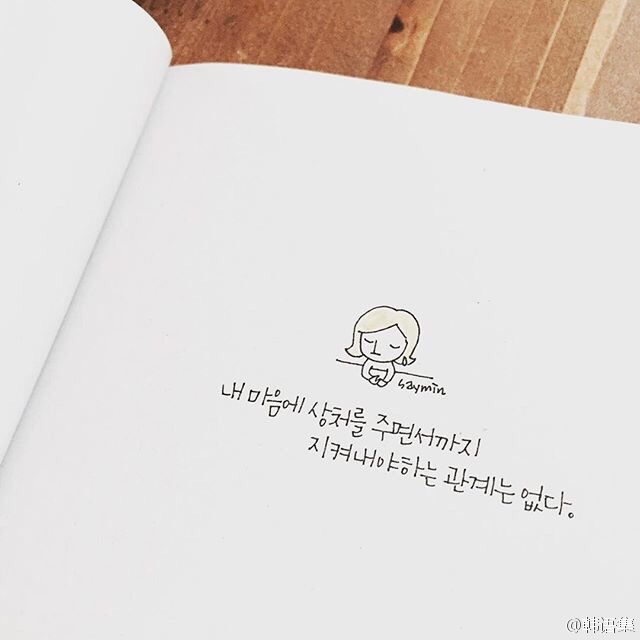 saymin
내 마음에 상처를 주면서까지
지켜내야하는 관계는 없다.
@韩语集